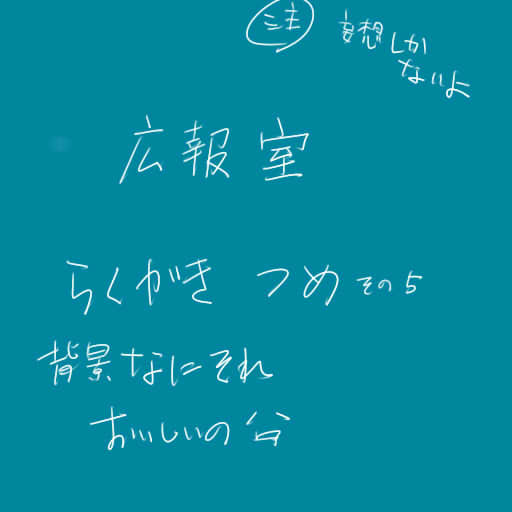 注 妄想しか
ないよ
広報室
らくがき つめ その5
背景なにそれ
おいしいの 谷